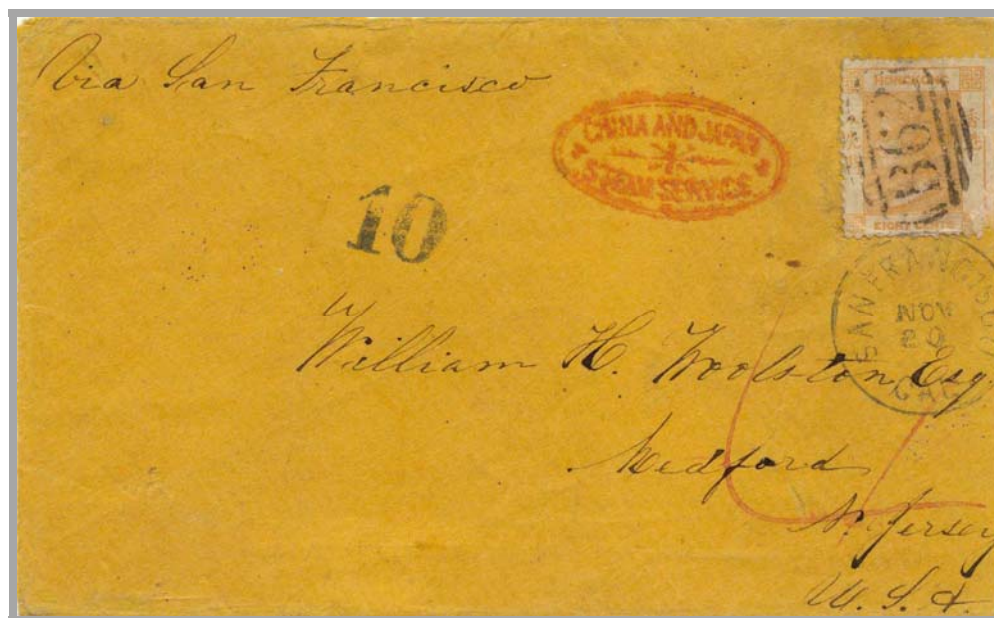 Via San Francisco
CHINA AND JAPAN
STEAM SERVICE
HONG KONG
B62
EIGHT CENTS
10
SAN FRANCISCO
NOV
29
CAL
William H. Woolston Esq
Medford
N. Jersey
U. S. A.